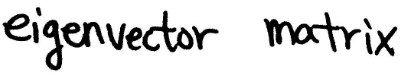 eigenvector matrix